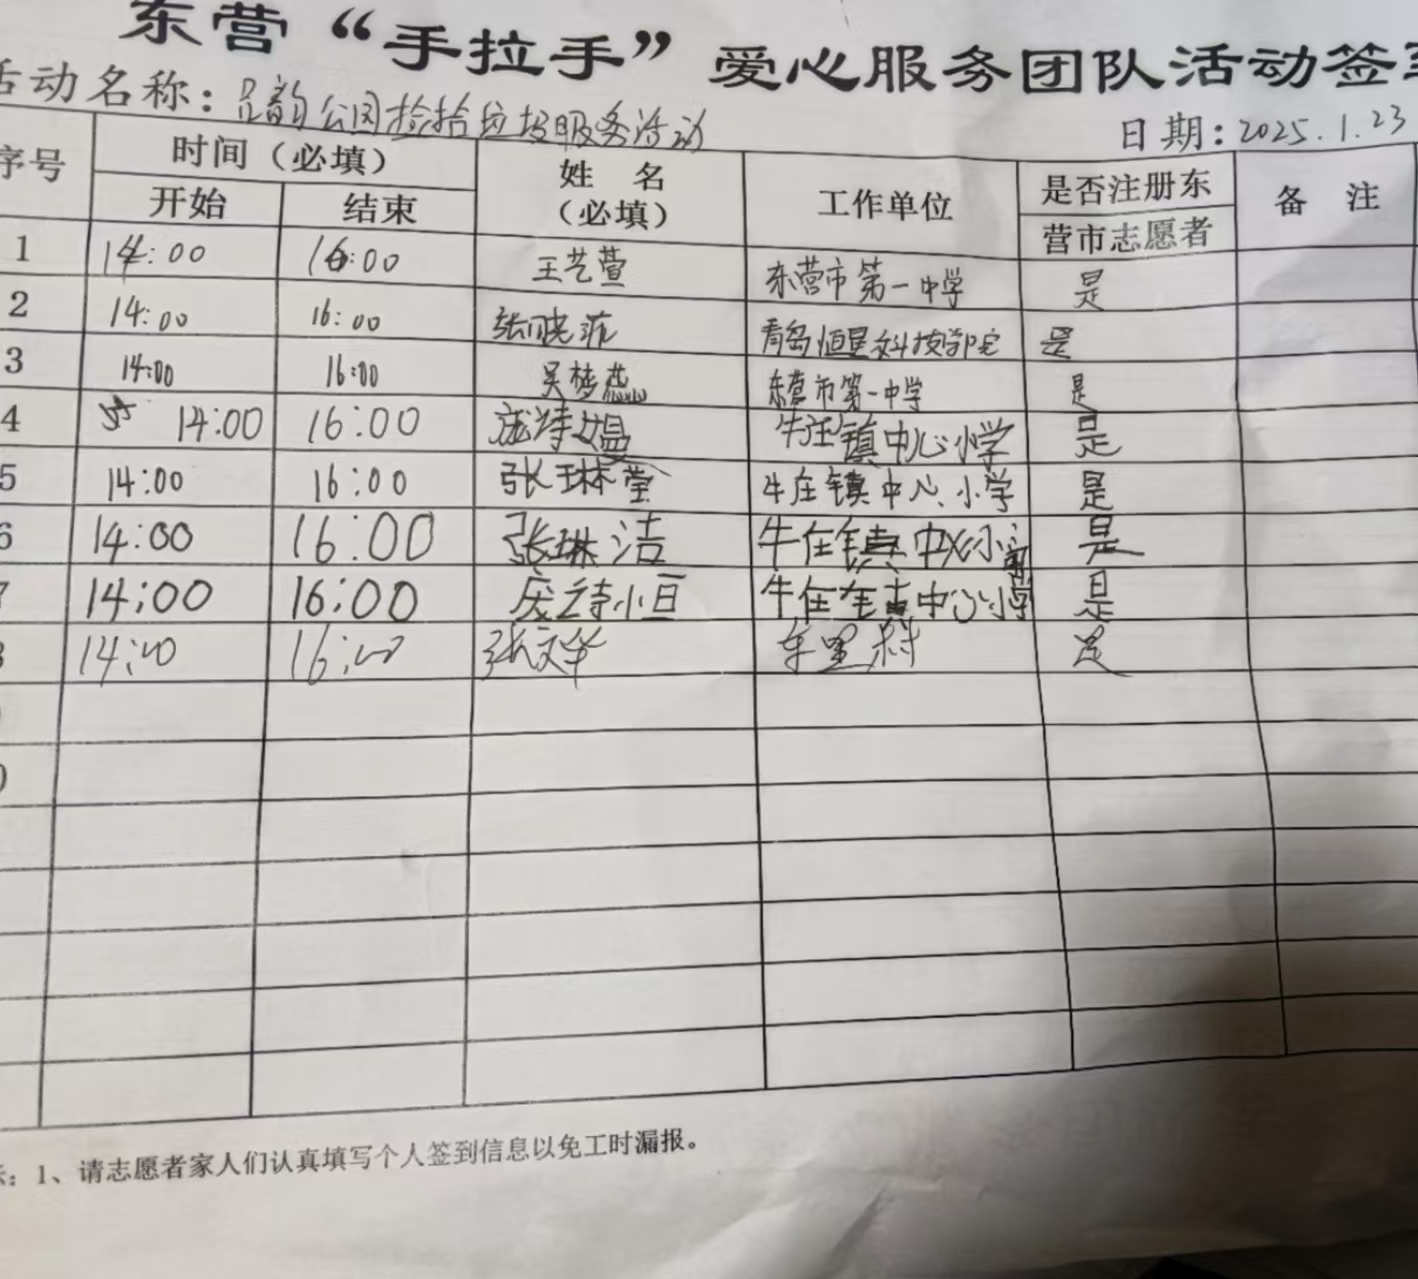 东营“手拉手”爱心服务团队活动签到
活动名称：吕韵公园捡拾垃圾服务活动
日期：2025.1.23
序号 时间（必填） 姓 名（必填） 工作单位 是否注册东营市志愿者 备 注
开始 结束
1 14:00 16:00 王艺萱 东营市第一中学 是
2 14:00 16:00 张晓菲 青岛恒星科技学院 是
3 14:00 16:00 吴梦蕊 东营市第一中学 是
4 14:00 16:00 庞诗媪 牛庄镇中心小学 是
5 14:00 16:00 张琳莹 牛庄镇中心小学 是
6 14:00 16:00 张琳洁 牛住镇中心小学 是
7 14:00 16:00 庞诗恒 牛住镇中心小学 是
8 14:00 16:00 张文华 是
：1、请志愿者家人们认真填写个人签到信息以免工时漏报。